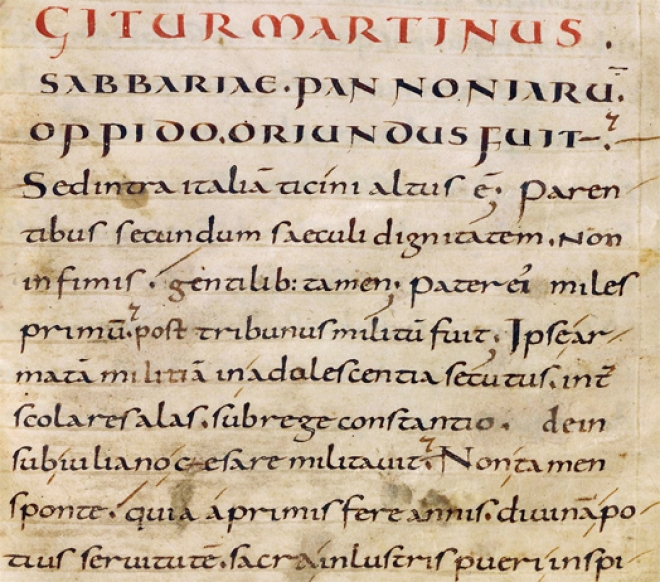 GITUR MARTINUS.
SABBARIAE. PANNONIARŪ.
OPPIDO. ORIUNDUS FUIT.
Sed intra italiā ticini altus ē; Paren
tibus secundum saeculi dignitatem. Non
infimis. gentilib: tamen; Pater ei miles
primū. post tribunus militū fuit. Ipse ar
matā militiā in adolescentia secutus. int̄
scolares alas. sub rege constantio. dein
sub iuliano cesare militavit. Non tamen
sponte. quia a primis fere annis. divinā po
tius servitutē. sacra inlustris pueri inspi